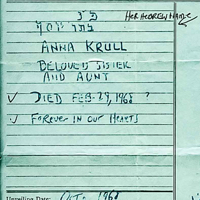 פ״נ
HER HEBREW NAME
ANNA KRULL
BELOVED SISTER
AND AUNT
✓ DIED FEB. 29, 1968 ?
✓ FOREVER IN OUR HEARTS
Unveiling Date: Oct. 1968